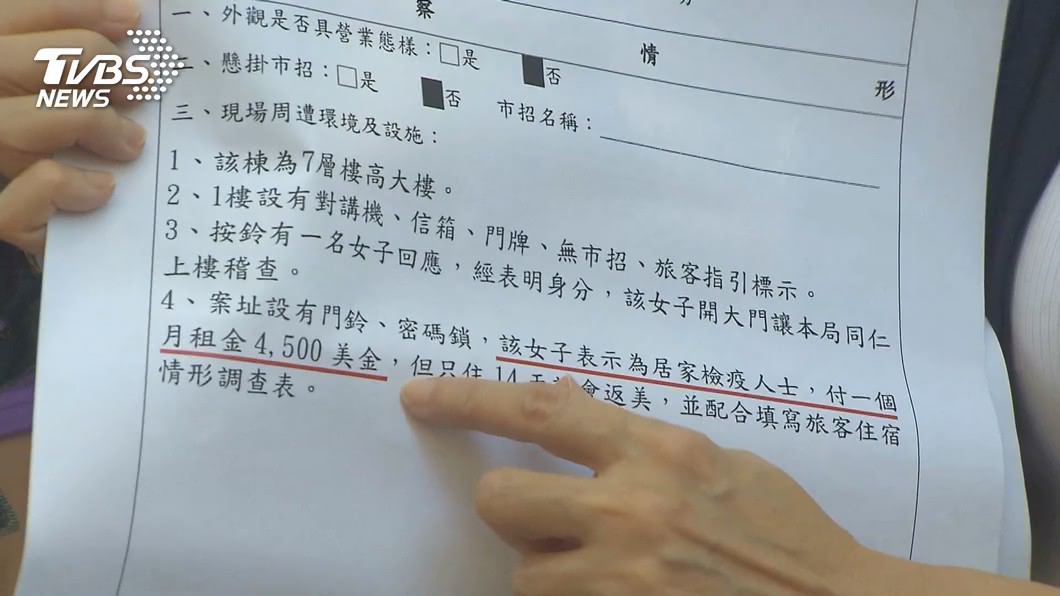 察
情
形
一、外觀是否具營業態樣：□是 ■否
TVBS
NEWS
二、懸掛市招：□是 ■否 市招名稱：
三、現場周遭環境及設施：
1、該棟為7層樓高大樓。
2、1樓設有對講機、信箱、門牌、無市招、旅客指引標示。
3、按鈴有一名女子回應，經表明身分，該女子開大門讓本局同仁
上樓稽查。
4、案址設有門鈴、密碼鎖，該女子表示為居家檢疫人士，付一個
月租金4,500美金，但只住14天 會返美，並配合填寫旅客住宿
情形調查表。